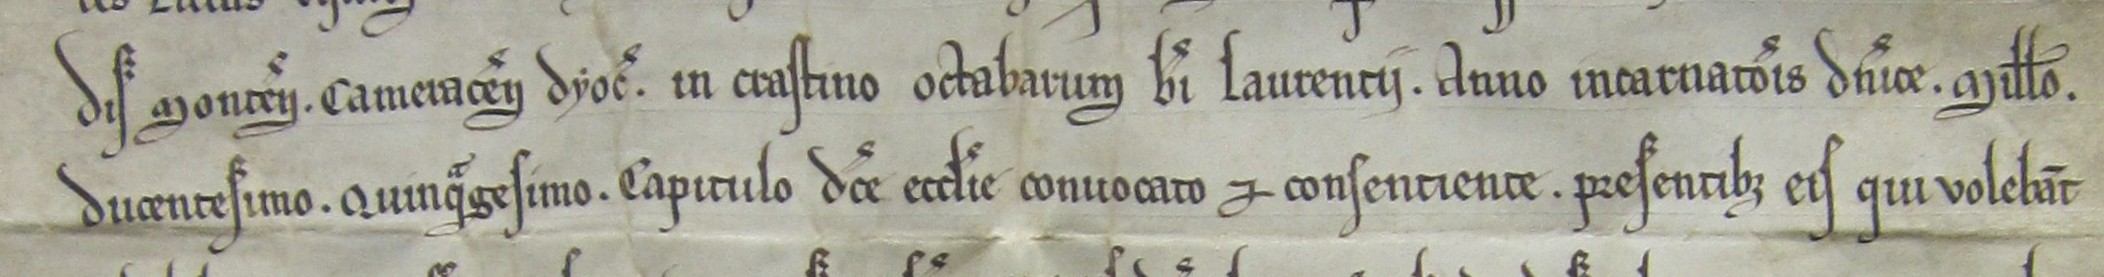 dis Monten̄. Cameracen̄ dyoc̄. in crastino octabarum bi̅ Laurencij. Anno incarnatōis dn̄ice. Millo̅.
ducentesimo. Quinqᵃgesimo. Capitulo dc̄e eccl̄ie conuocato ⁊ consentiente. presentibꝫ eis qui volebāt